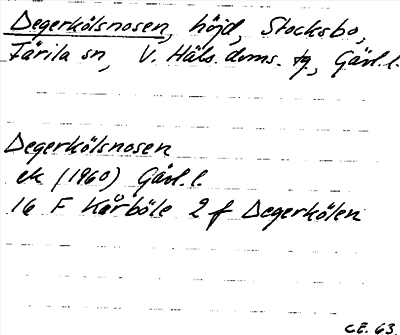 Degerkölsnosen, höjd, Stocksbo,
Färila sn, V. Häls. doms. tg, Gävl. l.
Degerkölsnosen
ek (1960) Gävl. l.
16 F Kårböle 2 f Degerkölen
C.E. 63.